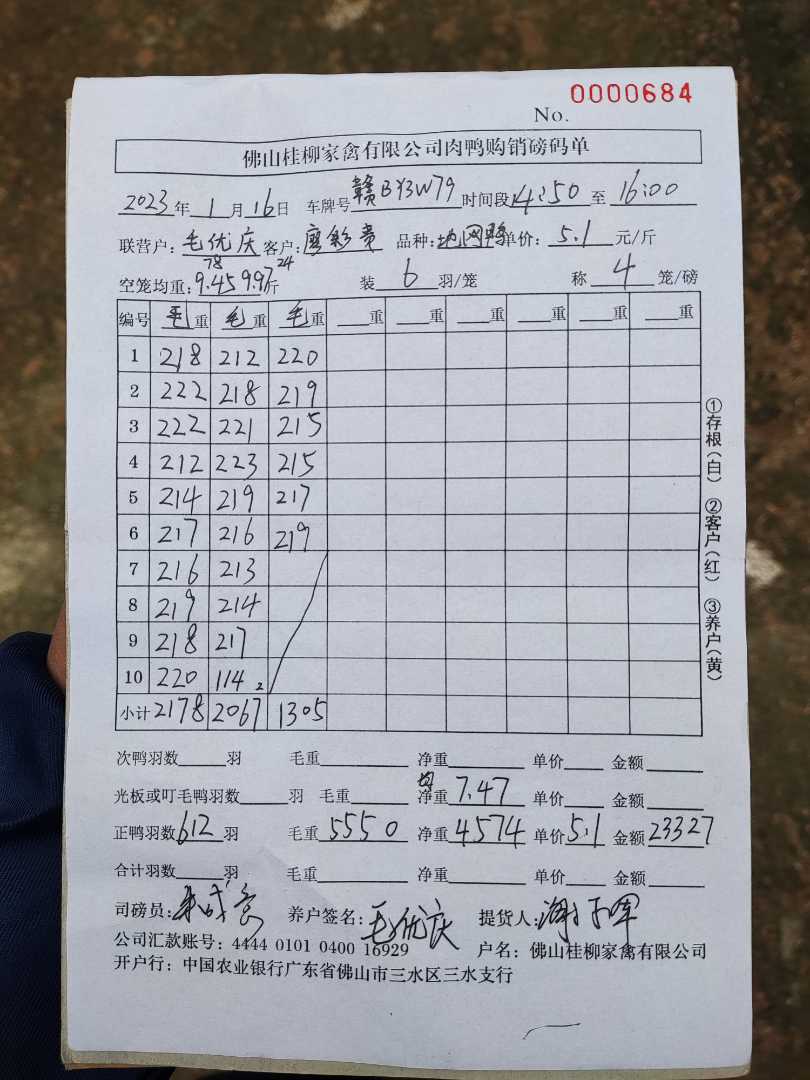 0000684
No.
佛山桂柳家禽有限公司肉鸭购销磅码单
2023年1月16日 车牌号赣BY3W79时间段14:50至16:00
联营户:毛优庆客户:廖彩贵 品种:地网鸭单价:5.1元/斤
78 24
空笼均重:9.45 9.97斤 装6羽/笼 称4笼/磅
编号 毛重 毛重 毛重 重 重 重 重 重 重
1 218 212 220
2 222 218 219
3 222 221 215
4 212 223 215
5 214 219 217
6 217 216 219
7 216 213
8 219 214
9 218 217
10 220 114 2
小计 2178 2067 1305
①存根(白) ②客户(红) ③养户(黄)
次鸭羽数 羽 毛重 净重 单价 金额
光板或叮毛鸭羽数 羽 毛重 均净重7.47 单价 金额
正鸭羽数612羽 毛重5550 净重4574单价5.1金额23327
合计羽数 羽 毛重 净重 单价 金额
司磅员: 养户签名:毛优庆 提货人:
公司汇款账号:4444 0101 0400 16929 户名:佛山桂柳家禽有限公司
开户行:中国农业银行广东省佛山市三水区三水支行